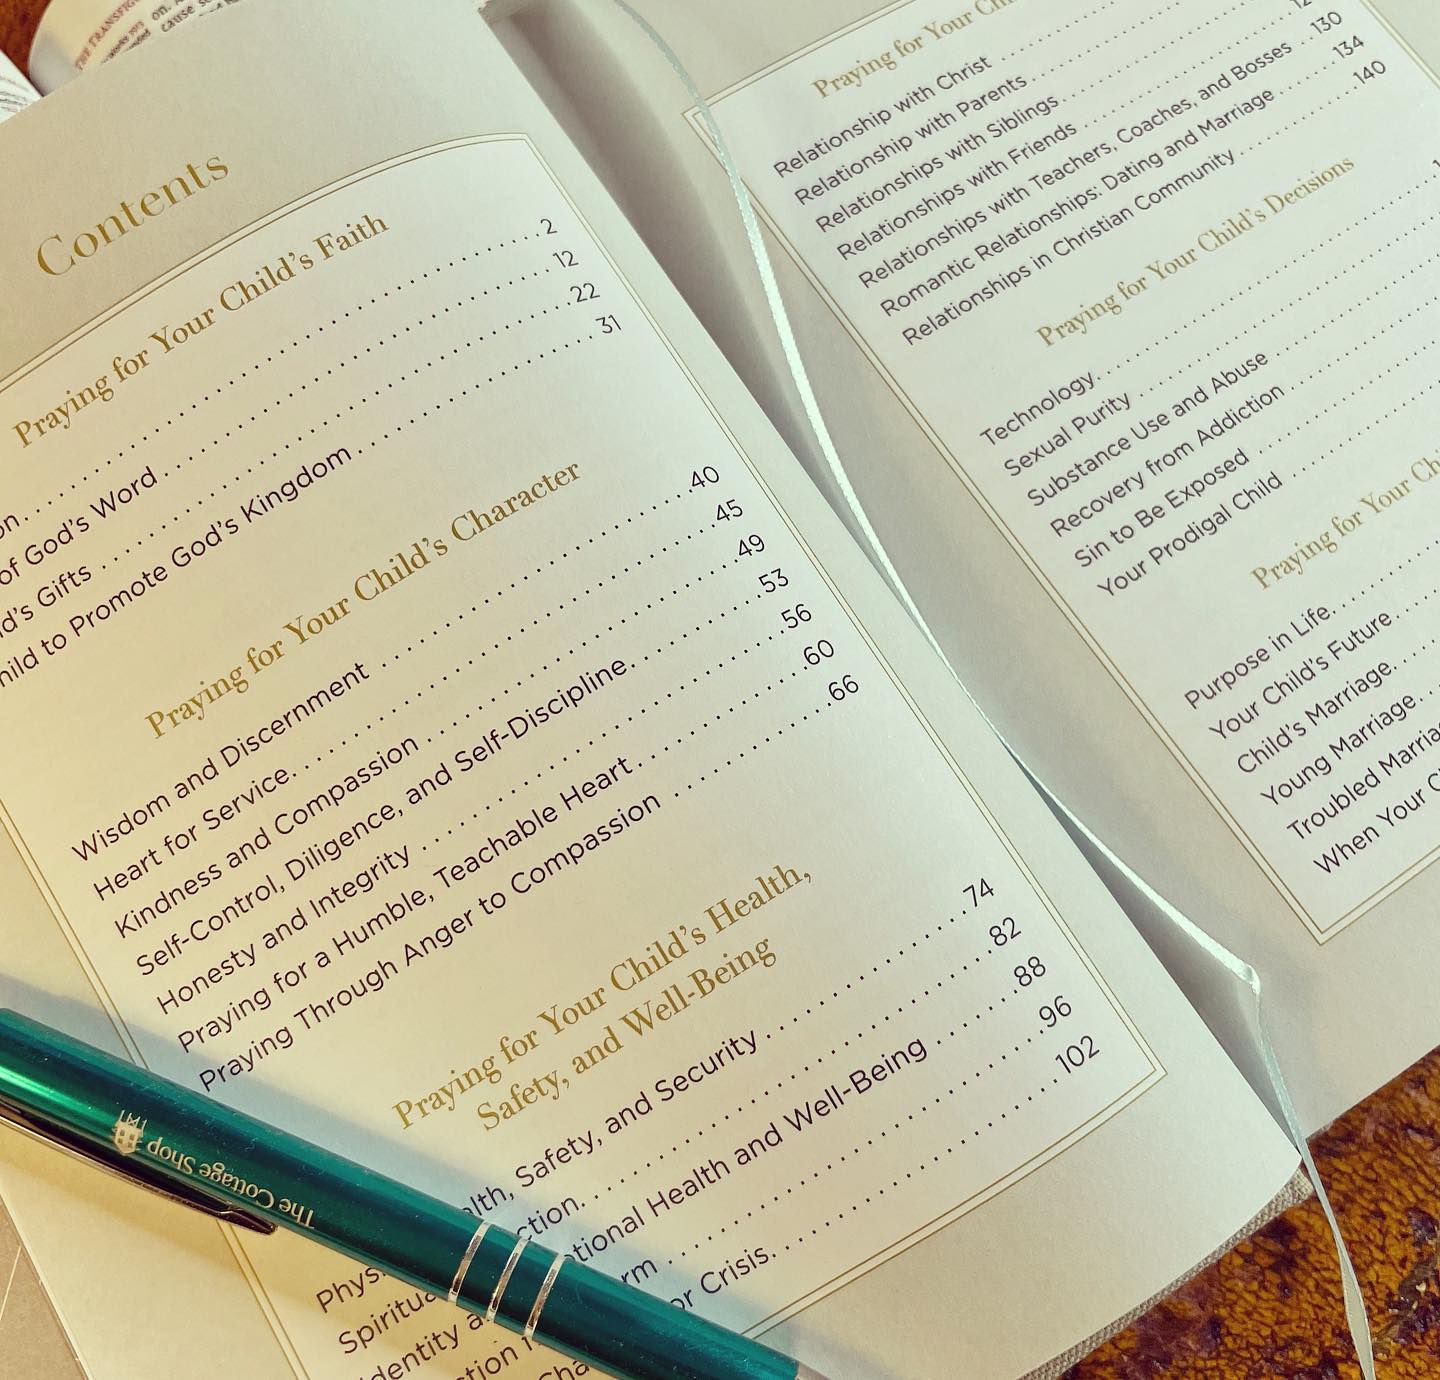 THE TRANSFIG
on.
cause
Contents
Praying for Your Child's Faith
on. . . . 2
of God's Word . . . . 12
d's Gifts . . . . 22
hild to Promote God's Kingdom . . . . 31
Praying for Your Child's Character
Wisdom and Discernment . . . . 40
Heart for Service. . . . 45
Kindness and Compassion . . . . 49
Self-Control, Diligence, and Self-Discipline. . . . 53
Honesty and Integrity . . . . 56
Praying for a Humble, Teachable Heart . . . . 60
Praying Through Anger to Compassion . . . . 66
Praying for Your Child's Health,
Safety, and Well-Being
Phys alth, Safety, and Security . . . . 74
Spiritua ction. . . . 82
Identity a otional Health and Well-Being . . . . 88
ction rm . . . . 96
Cha or Crisis. . . . 102
The Cottage Shop
Praying for Your Chi
Relationship with Christ . . . .
Relationship with Parents . . . .
Relationships with Siblings. . . .
Relationships with Friends . . . . 12
Relationships with Teachers, Coaches, and Bosses . . 130
Romantic Relationships: Dating and Marriage . . . . 134
Relationships in Christian Community . . . . 140
Praying for Your Child's Decisions
Technology. . . . 1
Sexual Purity . . . .
Substance Use and Abuse . . . .
Recovery from Addiction . . . .
Sin to Be Exposed . . . .
Your Prodigal Child . . . .
Praying for Your Chi
Purpose in Life. . . .
Your Child's Future. . . .
Child's Marriage. . . .
Young Marriage. . . .
Troubled Marria
When Your C